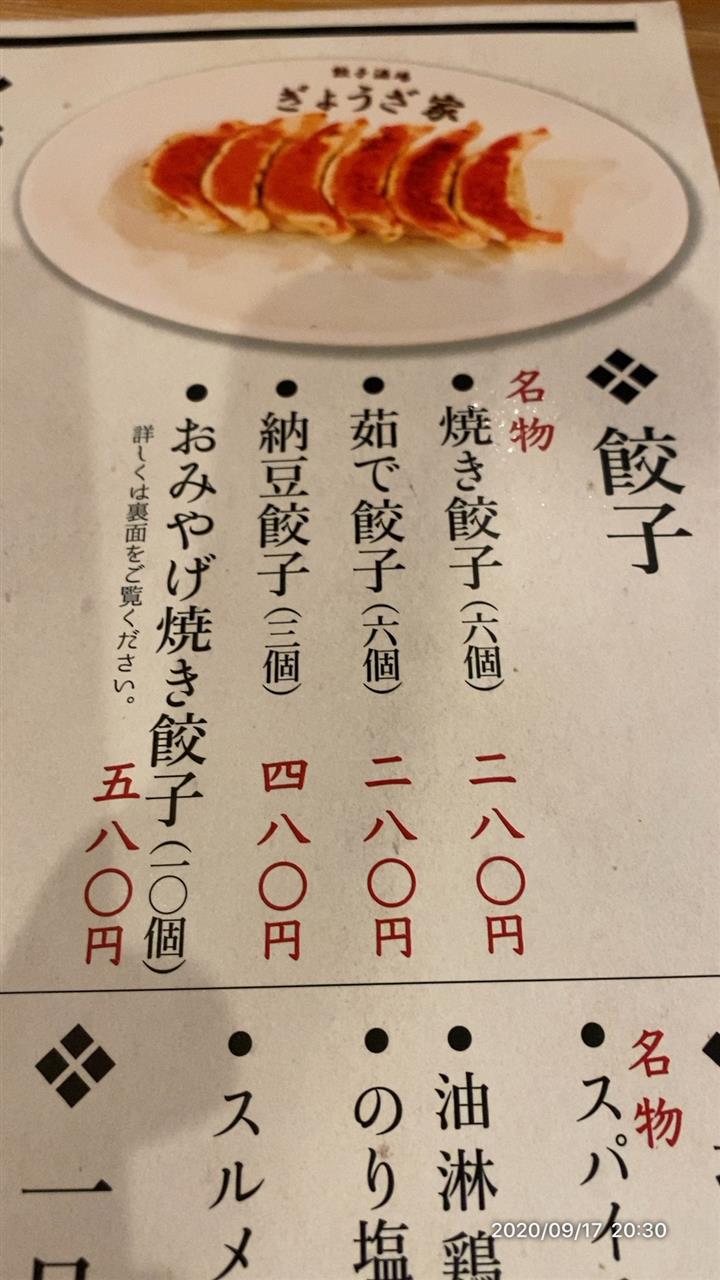 餃子酒場
ぎょうざ家
餃子
名物
焼き餃子(六個)
二八〇円
茹で餃子(六個)
二八〇円
納豆餃子(三個)
四八〇円
おみやげ焼き餃子(一〇個)
五八〇円
詳しくは裏面をご覧ください。
名物
スパイ
油淋鶏
のり塩
スルメ
一
2020/09/17 20:30